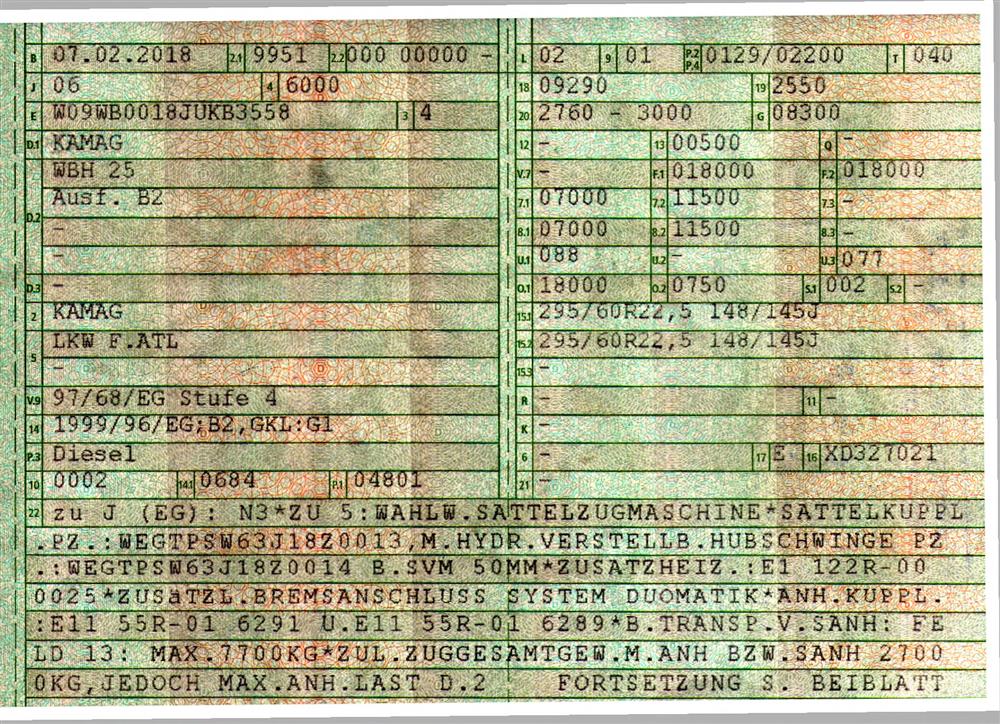 B 07.02.2018 2.1 9951 2.2 000 00000 -
J 06 4 6000
E W09WB0018JUKB3558 3 4
D.1 KAMAG
WBH 25
D.2 Ausf. B2
-
-
D.3 -
2 KAMAG
5 LKW F.ATL
-
V.9 97/68/EG Stufe 4
14 1999/96/EG;B2,GKL:G1
P.3 Diesel
10 0002 14.1 0684 P.1 04801
L 02 9 01 P.2 P.4 0129/02200 T 040
18 09290 19 2550
20 2760 - 3000 G 08300
12 - 13 00500 Q -
V.7 - F.1 018000 F.2 018000
7.1 07000 7.2 11500 7.3 -
8.1 07000 8.2 11500 8.3 -
U.1 088 U.2 - U.3 077
O.1 18000 O.2 0750 S.1 002 S.2 -
15.1 295/60R22,5 148/145J
15.2 295/60R22,5 148/145J
15.3 -
R - 11 -
K -
6 - 17 E 16 XD327021
21 -
22 zu J (EG): N3*ZU 5:WAHLW.SATTELZUGMASCHINE*SATTELKUPPL
.PZ.:WEGTPSW63J18Z0013,M.HYDR.VERSTELLB.HUBSCHWINGE PZ
.:WEGTPSW63J18Z0014 B.SVM 50MM*ZUSATZHEIZ.:E1 122R-00
0025*ZUSäTZL.BREMSANSCHLUSS SYSTEM DUOMATIK*ANH.KUPPL.
:E11 55R-01 6291 U.E11 55R-01 6289*B.TRANSP.V.SANH: FE
LD 13: MAX.7700KG*ZUL.ZUGGESAMTGEW.M.ANH BZW.SANH 2700
0KG,JEDOCH MAX.ANH.LAST D.2 FORTSETZUNG S. BEIBLATT